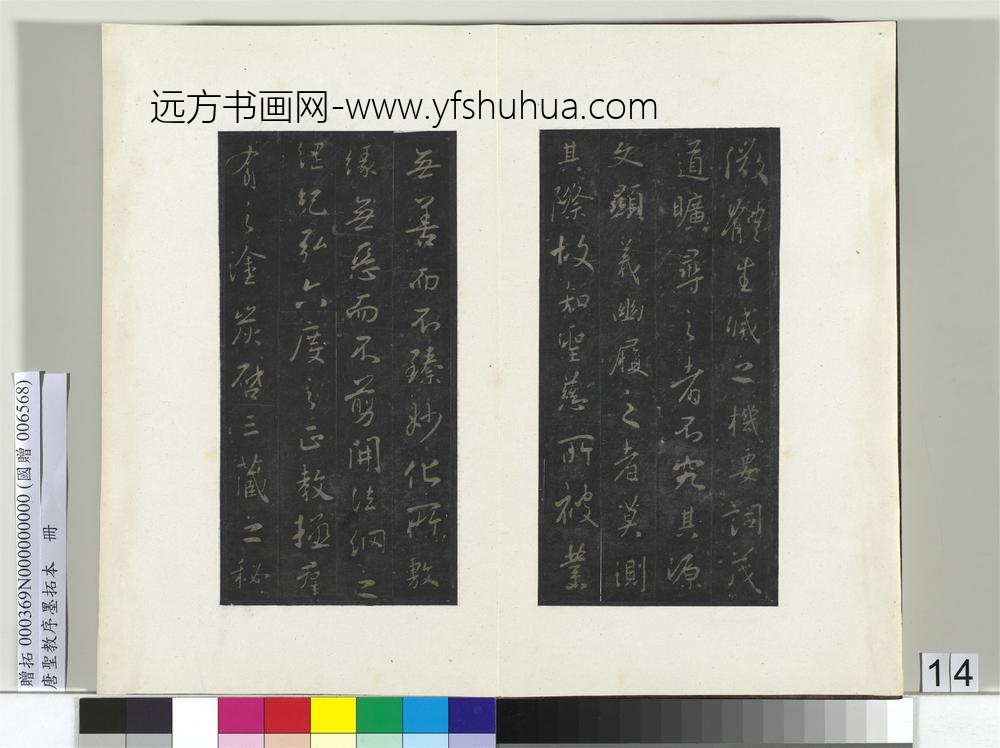 远方书画网-www.yfshuhua.com
微體生滅之機要詞茂
道曠尋之者不究其源
文顯義幽履之者莫測
其際故知聖慈所被業
無善而不臻妙化所敷
緣無惡而不剪開法網之
綱紀弘六度之正教拯群
有之塗炭啓三藏之秘
贈拓 000369N000000000 (國贈 006568)
唐聖教序墨拓本 冊
14